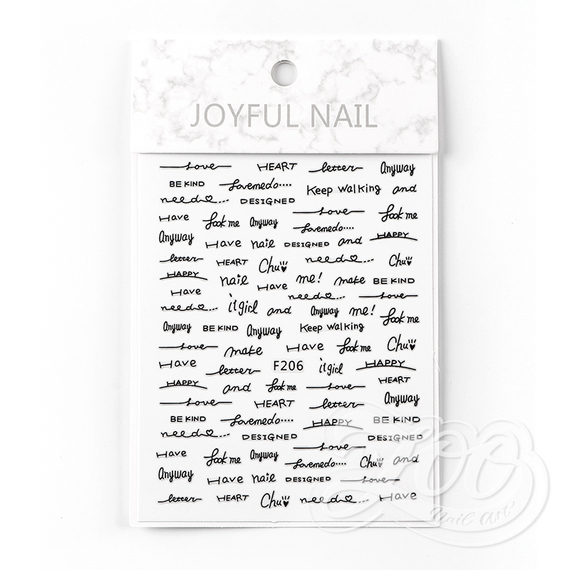 JOYFUL NAIL
Love HEART letter Anyway
BE KIND Lovemedo.... Keep walking and
need... DESIGNED Love
Have look me Anyway Lovemedo....
Anyway Have nail DESIGNED and HAPPY
letter HEART Chu need... Chu
HAPPY nail Have me! make BE KIND
Have need... Love
need... it girl and Anyway me! look me
Anyway BE KIND Anyway Keep walking
Love make Have look me Chu
Have letter F206 it girl HAPPY
HAPPY and look me Love HEART
Love HEART letter Anyway
BE KIND Lovemedo.... HAPPY BE KIND
need... DESIGNED Love DESIGNED
Have look me Anyway Lovemedo.... Chu and
Anyway Have nail DESIGNED Love
letter HEART Chu need... Have
ZOO
Nail Art